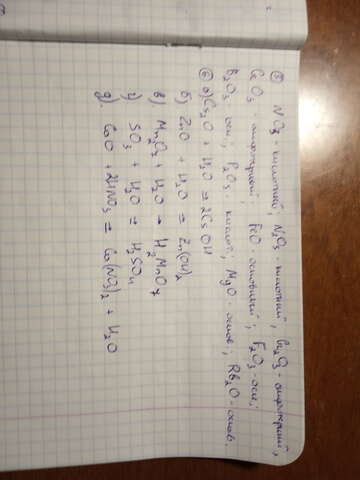 ⑤ NO2 - кислотний; N2O3 - кислотний, Cr2O3 - амфотерний,
CrO3 - амфотерний; FeO основний; F2O3 - осн;
B2O3 - осн; P2O3 - кислот; MgO - основ; Rb2O - основ.
⑥ а) Cs2O + H2O → 2CsOH
б) ZnO + H2O → Zn(OH)2
в) Mn2O7 + H2O → H2MnO7
г) SO3 + H2O → H2SO4
д) CoO + 2HNO3 → Co(NO3)2 + H2O